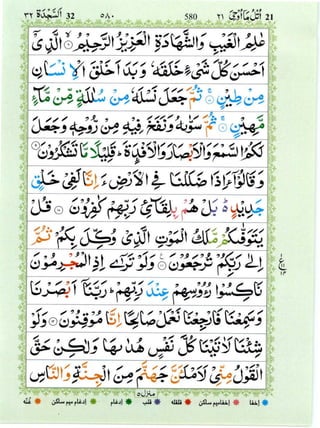 السجدة ٣٢ ٥٨٠ 580 اتل ما اوحی ٢١
عٰلِمُ الْغَيْبِ وَالشَّهَادَةِ الْعَزِيْزُ الرَّحِيْمُ ۙ الَّذِيْۤ
اَحْسَنَ كُلَّ شَيْءٍ خَلَقَهٗ وَبَدَاَ خَلْقَ الْاِنْسَانِ
مِنْ طِيْنٍ ۚ ثُمَّ جَعَلَ نَسْلَهٗ مِنْ سُلٰلَةٍ مِّنْ مَّآءٍ
مَّهِيْنٍ ۚ ثُمَّ سَوّٰىهُ وَنَفَخَ فِيْهِ مِنْ رُّوْحِهٖ وَجَعَلَ
لَكُمُ السَّمْعَ وَالْاَبْصَارَ وَالْاَفْـِٕدَةَ ؕ قَلِيْلًا مَّا تَشْكُرُوْنَ
وَقَالُوْۤا ءَاِذَا ضَلَلْنَا فِي الْاَرْضِ ءَاِنَّا لَفِيْ خَلْقٍ
جَدِيْدٍ ؕ بَلْ هُمْ بِلِقَآئِ رَبِّهِمْ كٰفِرُوْنَ قُلْ
يَتَوَفّٰىكُمْ مَّلَكُ الْمَوْتِ الَّذِيْ وُكِّلَ بِكُمْ ثُمَّ
اِلٰى رَبِّكُمْ تُرْجَعُوْنَ وَلَوْ تَرٰۤى اِذِ الْمُجْرِمُوْنَ
نَاكِسُوْا رُءُوْسِهِمْ عِنْدَ رَبِّهِمْ ؕ رَبَّنَاۤ اَبْصَرْنَا
وَسَمِعْنَا فَارْجِعْنَا نَعْمَلْ صَالِحًا اِنَّا مُوْقِنُوْنَ وَلَوْ
شِئْنَا لَاٰتَيْنَا كُلَّ نَفْسٍ هُدٰىهَا وَلٰكِنْ حَقَّ
الْقَوْلُ مِنِّيْ لَاَمْلَـَٔنَّ جَهَنَّمَ مِنَ الْجِنَّةِ وَالنَّاسِ
منزل ٥
اخفا اخفا میم ساکن قلقلہ قلب ادغام ادغام میم ساکن غنہ